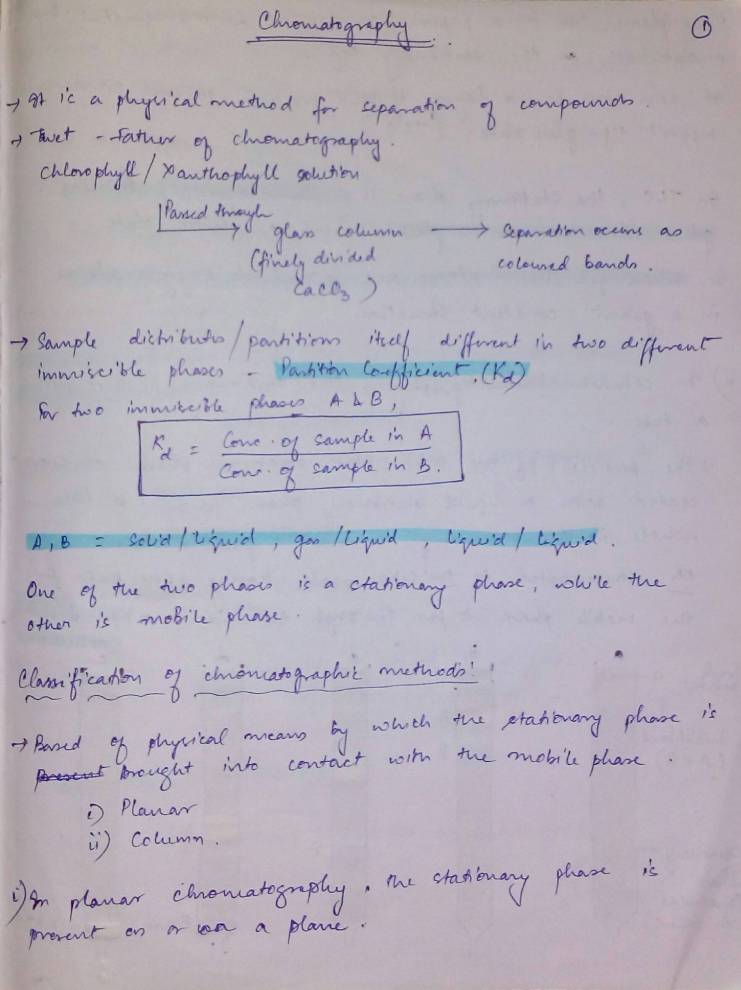 Chromatography
①
→ It is a physical method for separation of compounds.
→ Tswet - Father of chromatography.
Chlorophyll / Xanthophyll solution
Passed through
→ glass column → Separation occurs as
(finely divided coloured bands.
CaCO3)
→ Sample distributes/partitions itself different in two different
immiscible phases - Partition Coefficient (Kd)
For two immiscible phases A & B,
Kd = Conc. of sample in A
Conc. of sample in B.
A, B = solid/liquid, gas/liquid, liquid/liquid.
One of the two phases is a stationary phase, while the
other is mobile phase.
Classification of chromatographic methods:
→ Based of physical means by which the stationary phase is
present brought into contact with the mobile phase.
i) Planar
ii) Column.
i) In planar chromatography, the stationary phase is
present on or a plane.